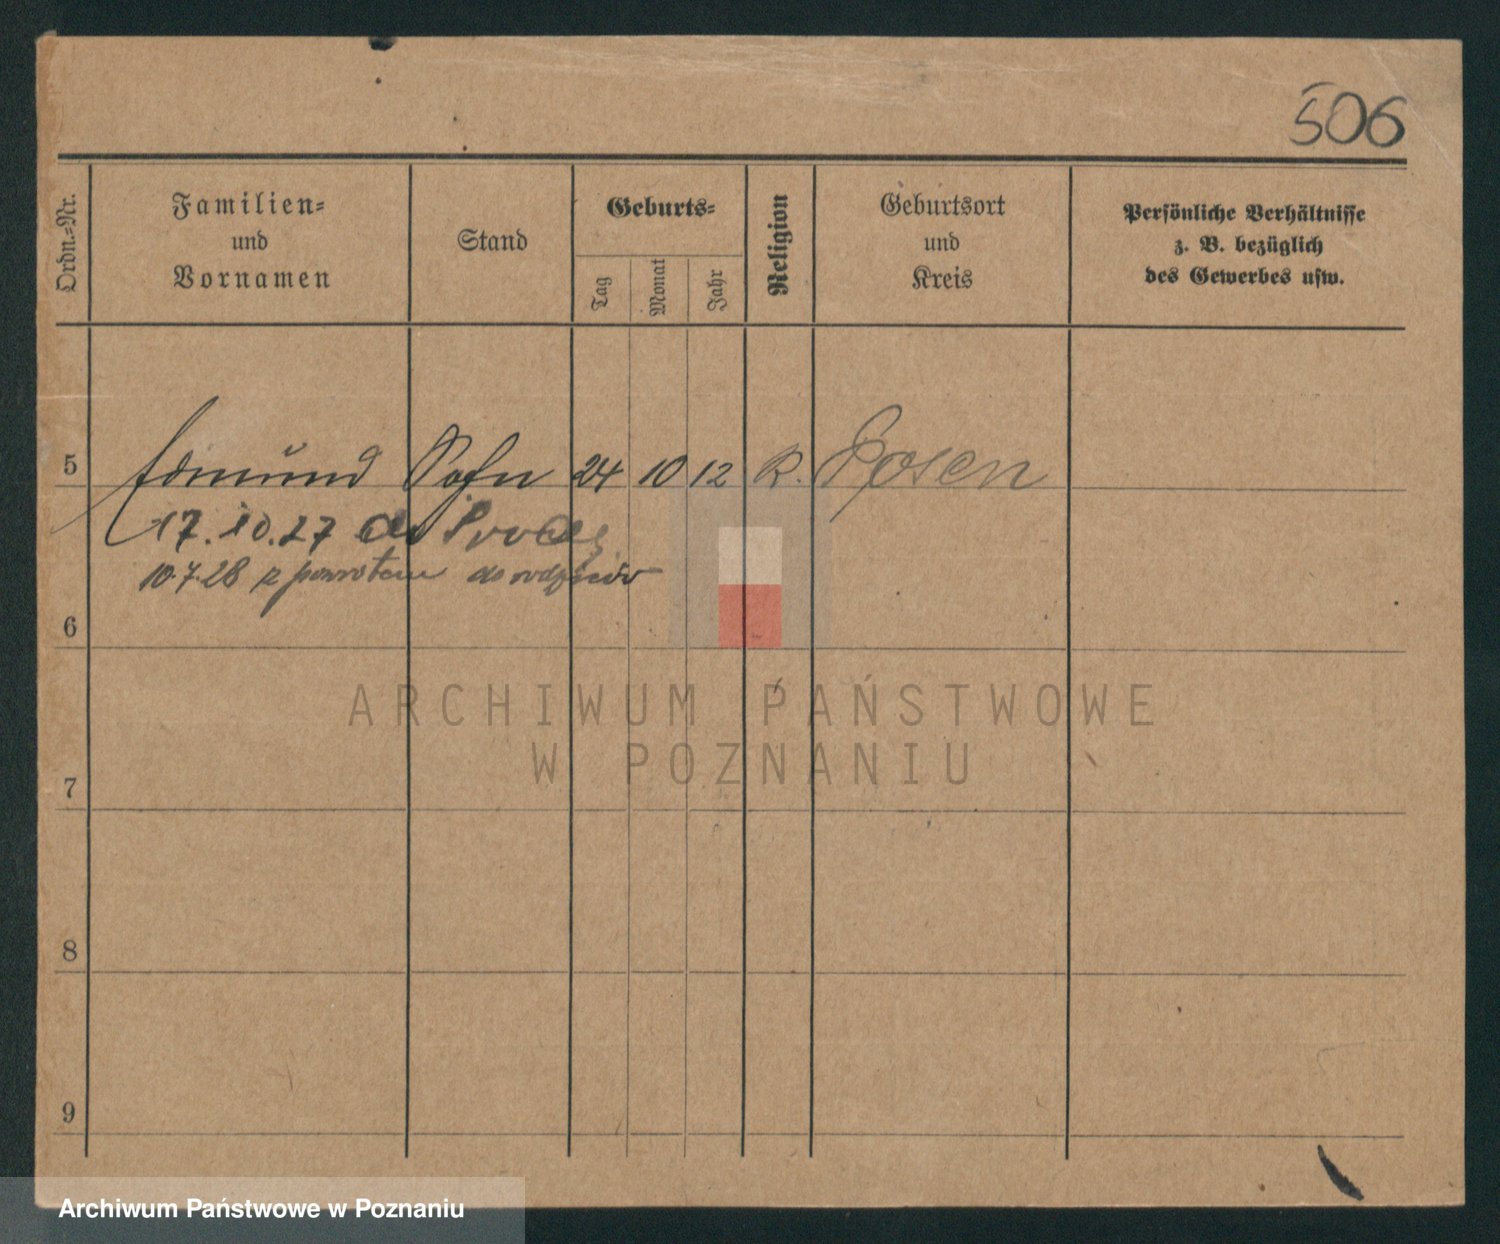 506
Ordn.-Nr.
Familien-
und
Vornamen
Stand
Geburts-
Tag
Monat
Jahr
Religion
Geburtsort
und
Kreis
Persönliche Verhältnisse
z. B. bezüglich
des Gewerbes usw.
5 Edmund Sohn 24 10 12 K. Posen
17.10.27 do
10.7.28 z powrotem do rodziców
6
7
8
9
ARCHIWUM PAŃSTWOWE
W POZNANIU
Archiwum Państwowe w Poznaniu